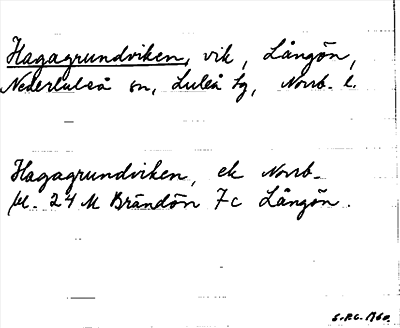 Hagagrundviken, vik, Långön,
Nederluleå sn, Luleå tg, Norrb. l.
Hagagrundviken, ek Norrb.
bl. 24 M Brändön 7c Långön.
1960.